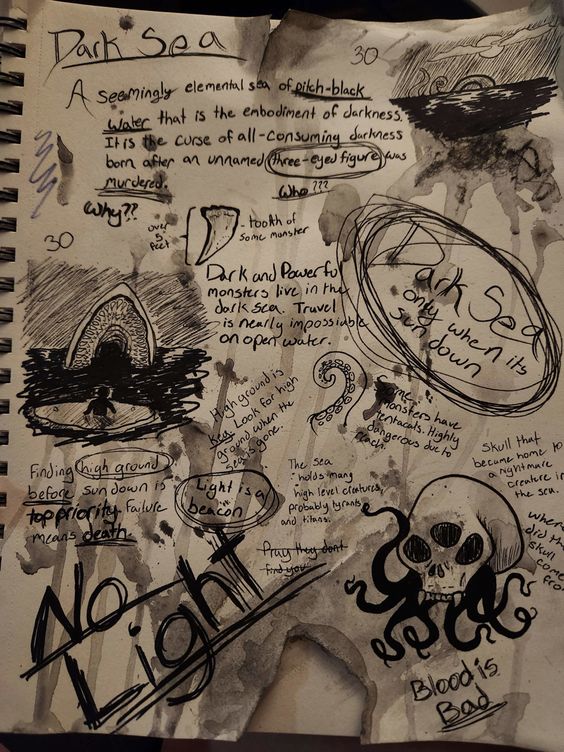 Dark Sea
30
A seemingly elemental sea of pitch-black
water that is the embodiment of darkness.
It is the curse of all-consuming darkness
born after an unnamed three-eyed figure was
murdered.
Who???
Why??
over
5
feet
- tooth of
some monster
30
Dark and Powerful
monsters live in the
dark sea. Travel
is nearly impossiable
on open water.
Dark Sea
only when its
sun down
High ground is
Key. Look for high
ground when the
sea is gone.
Some
monsters have
tentacals. Highly
dangerous due to
reach.
Finding high ground
before sun down is
top priority failure
means death.
Light is a
beacon
The sea
holds many
high level creatures,
probably tyrants
and titans.
Pray they dont
find you
Skull that
became home to
a nightmare
creature in
the sea.
where
did th
skull
come
fro
No
Light
Blood is
Bad